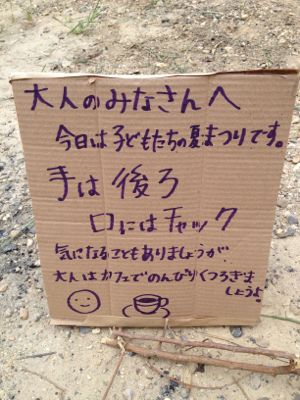 大人のみなさんへ
今日は子どもたちの夏まつりです。
手は後ろ
口にはチャック
気になることもありましょうが
大人はカフェでのんびりくつろぎま
しょうよ